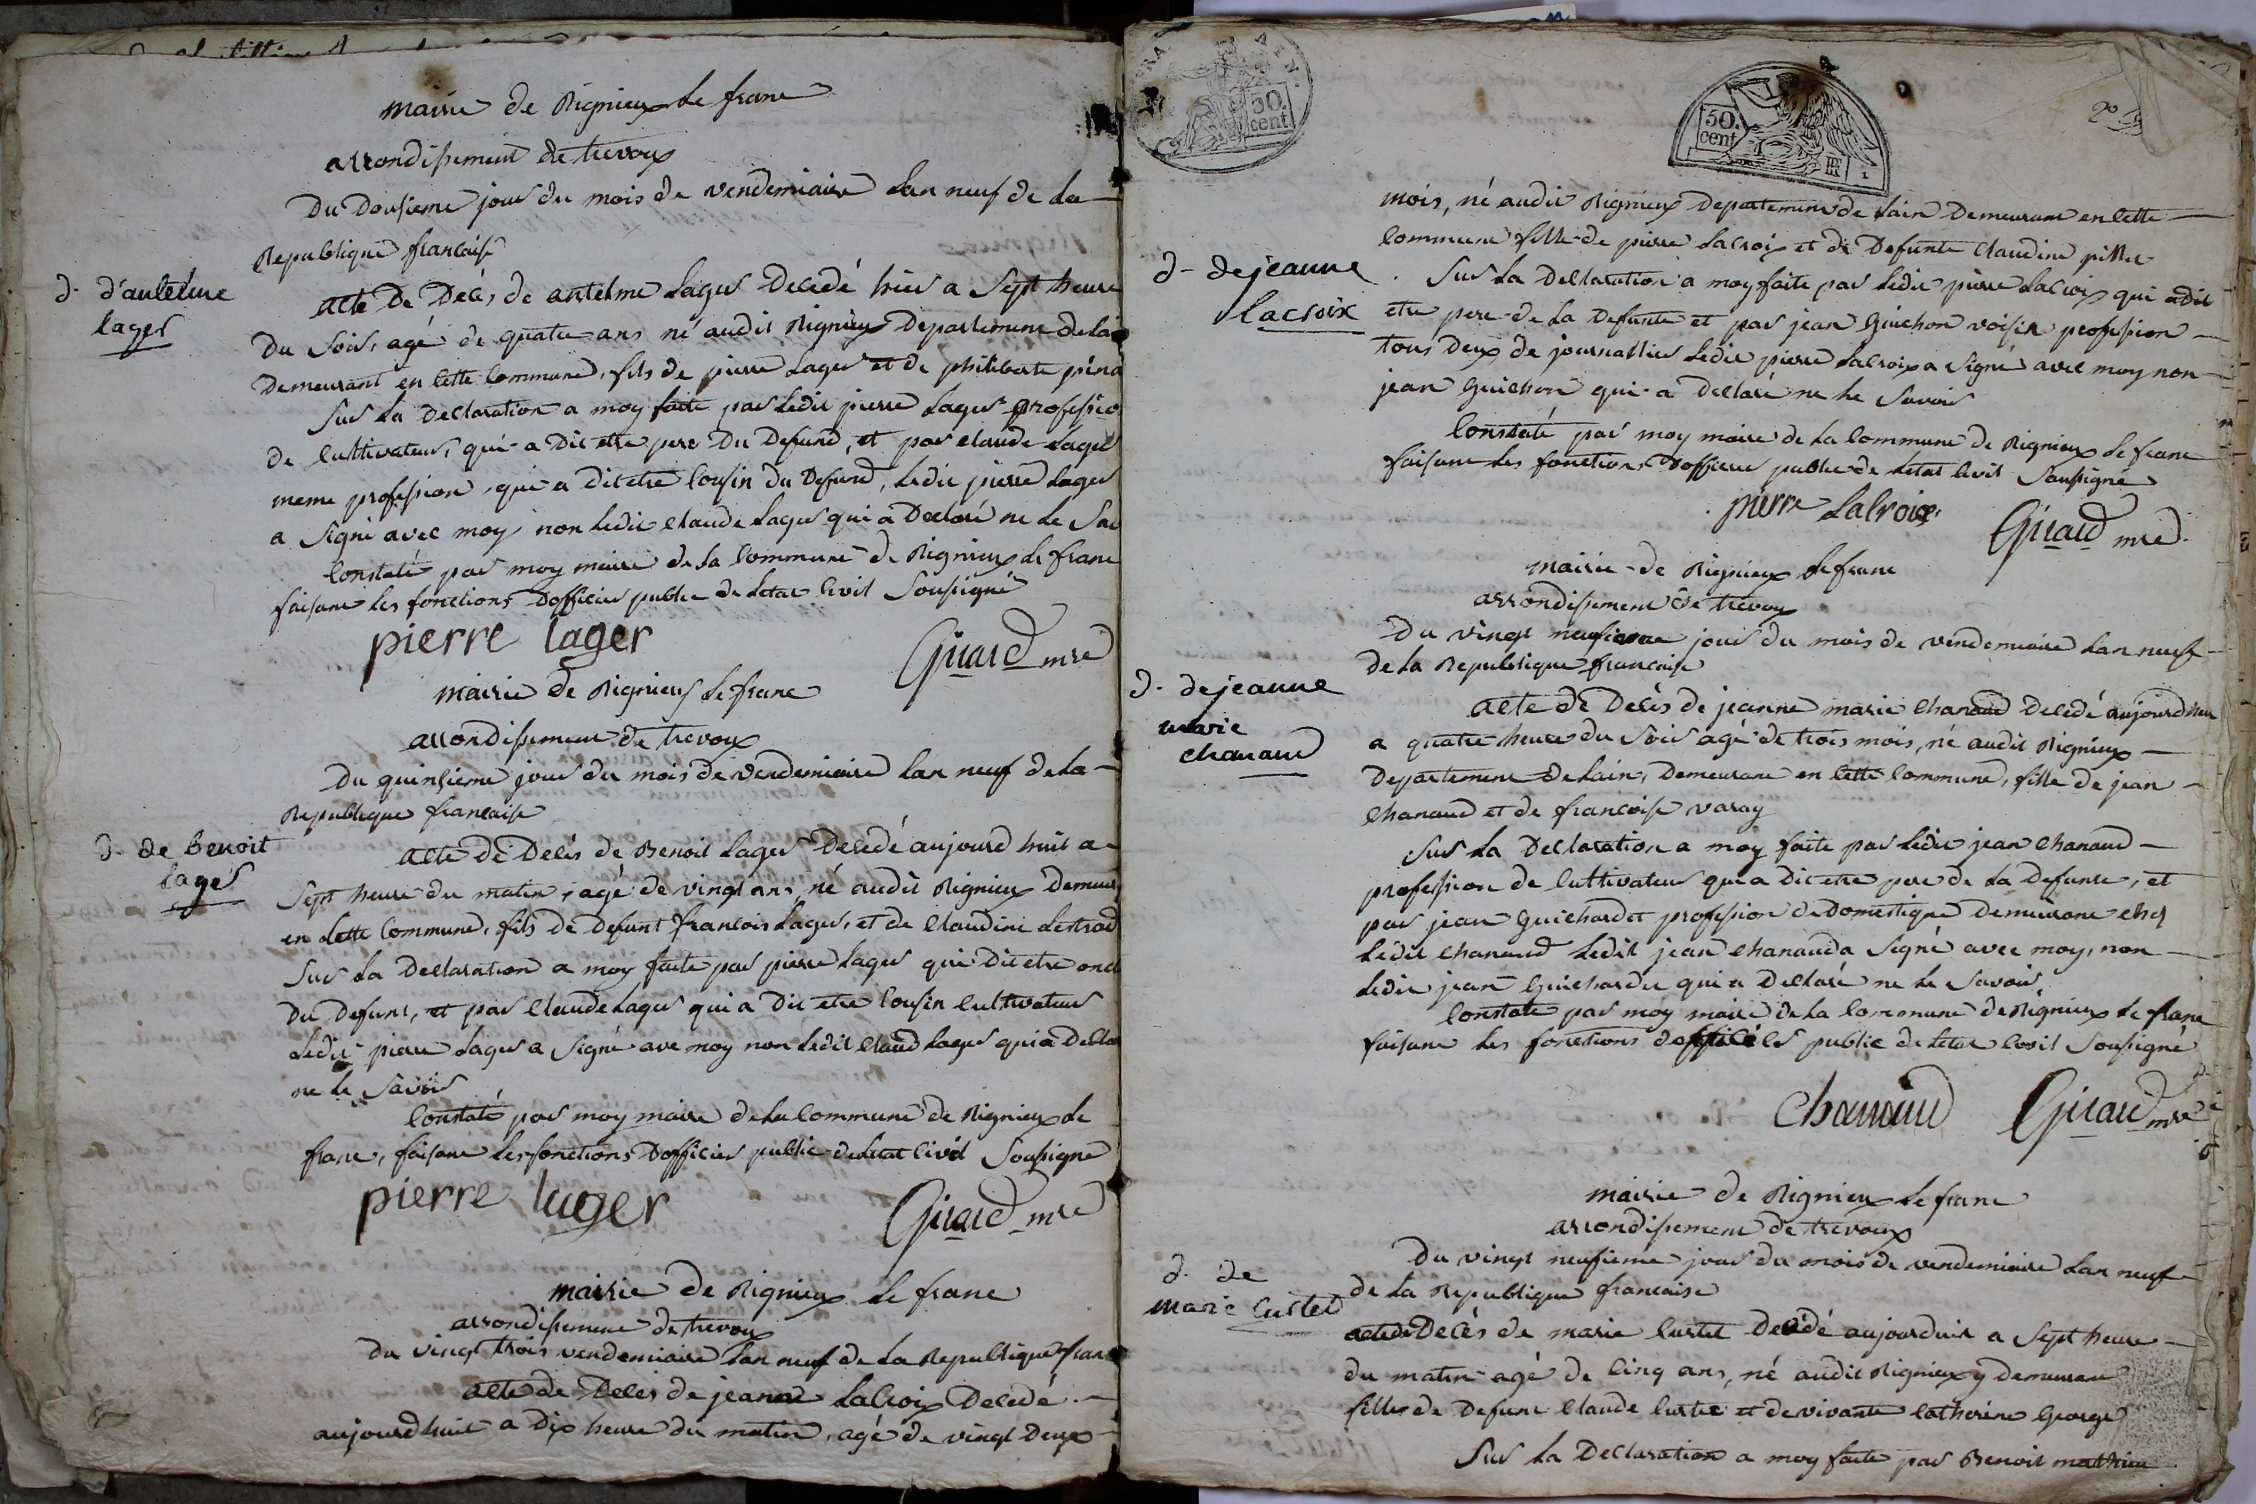 mairie de Rignieux le franc
arrondissement de trevoux
Du Dousieme jour du mois de vendemiaire Lan neuf de La
Republique francaise
d. d'antelme
lager
acte De Décès de antelme Lager Decedé hier a Sept heure
Du Soir, agé de quatre ans né audit Rignieux Departement de Lain
Demeurant en cette commune, fils de pierre Lager et de philiberte
Sur La Declaration a moy faite par Ledit pierre Lager professio
de cultivateur, qui a Dit etre pere Du Defund, et par claude Lager
meme profession, qui a Dit etre cousin du Defund, Ledit pierre Lager
a Signé avec moy, non Ledit claude Lager qui a Declaré ne Le Sav
Constaté par moy maire de La commune de Rignieux Le franc
faisant Les fonctions Dofficier public de Letat civil Soussigné
pierre lager Girard mre
mairie de Rignieux Le franc
arrondissement de trevoux
Du quinsieme jour du mois de vendemiaire Lan neuf de La
Republique francaise
d. de Benoit
lager
acte de Décès de Benoit Lager Decedé aujourd huit a
Sept heure du matin, agé de vingt ans, né audit Rignieux Demeur
en Cette Commune, fils de Defunt francois Lager, et de Claudine
Sur La Declaration a moy faite par pierre Lager qui Dit etre oncl
Du Defunt, et par Claude Lager qui a Dit etre Cousin Cultivateur
Ledit pierre Lager a Signé ave moy non Ledit Claud Lager qui a Decla
ne Le Savoir
Constaté par moy maire de La Commune de Rignieux Le
franc, faisant Les fonctions Dofficier public de Letat Civil Soussigné
pierre lager Girard mre
mairie de Rignieux Le franc
arrondissement de trevoux
du vingt trois vendemiaire Lan neuf de La Republique fran
acte de Décès de jeanne Lacroix Decedé
aujourd huit a Dix heure du matin, agé de vingt Deux
50. cent
50. cent
RF
mois, né audit Rignieux Departement de Lain Demeurant en Cette
Commune fille de pierre Lacroix et de Defunte Claudine pillet
d- de jeanne
lacroix
Sur La Declaration a moy faite par Ledit pierre Lacroix qui a dit
etre pere de La Defunte et par jean Guichon voisin profession
tous Deux de journallier Ledit pierre Lacroix a Signé avec moy non
jean Guichon qui a Declaré ne Le Savoir
Constaté par moy maire de La Commune de Rignieux Le franc
faisant Les fonctions Dofficier public de Letat Civil Soussigné
pierre Lacroix Girard mre
mairie de Rignieux Le franc
arrondissement de trevoux
Du vingt neufieme jour du mois de vendemiaire Lan neuf
de La Republique francaise
d. de jeanne
marie
chanaud
acte de Décès de jeanne marie Chanaud Decedé aujourdhui
a quatre heure du Soir agé de trois mois, né audit Rignieux
Departement de Lain, Demeurant en Cette Commune, fille de jean
Chanaud et de francoise varay
Sur La Declaration a moy faite par Ledit jean Chanaud
profession de Cultivateur qui a Dit etre pere de La Defunte, et
par jean Guichardet profession de Domestique Demeurant ches
Ledit Chanaud Ledit jean Chanaud a Signé avec moy, non
Ledit jean Guichardet qui a Declaré ne Le Savoir
Constaté par moy maire de La Commune de Rignieux Le franc
faisant Les fonctions dofficier public de Letat Civil Soussigné
Chanaud Girard mre
mairie de Rignieux Le franc
arrondissement de trevoux
Du vingt neufieme jour du mois de vendemiaire Lan neuf
de La Republique francaise
d. de
marie Curtet
acte de Décès de marie Curtet Decédé aujourduit a Sept heure
du matin agé de Cinq ans, né audit Rignieux y Demeurant
fille de Defunt Claude Curtet et de vivante Catherine George
Sur La Declaration a moy faite par Benoit mathieu